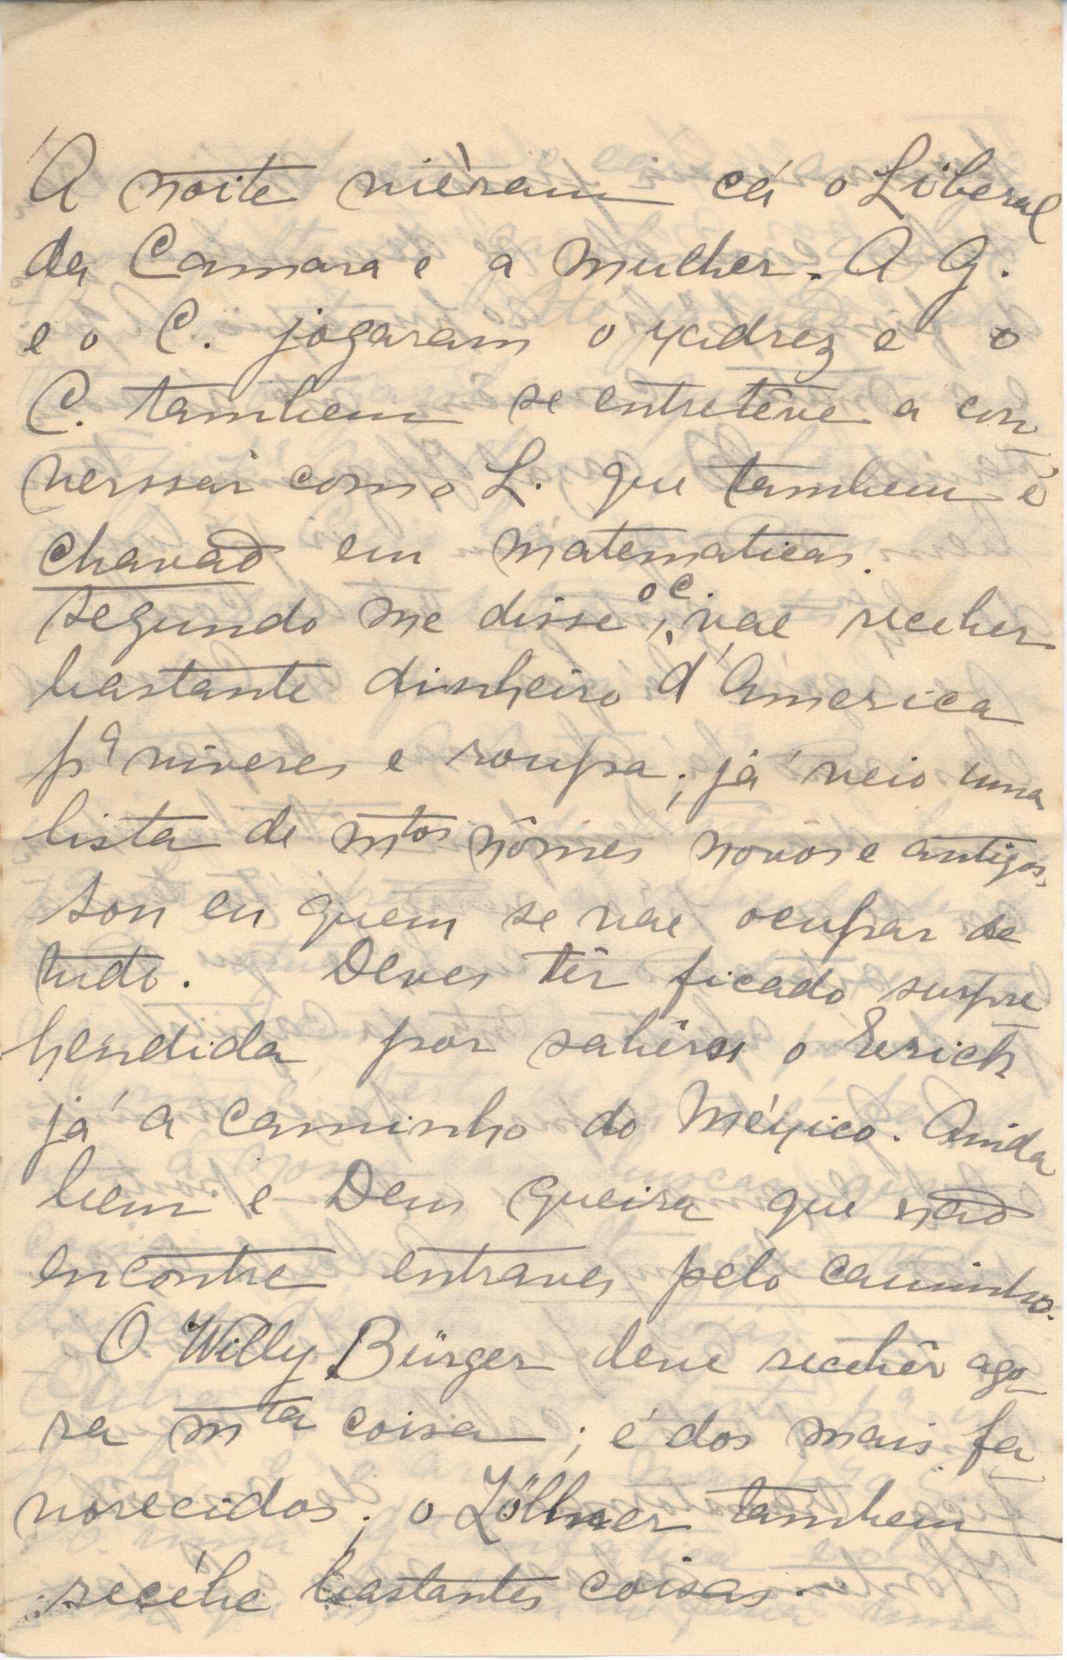 Á noite vièram cá o Liberal
da Camara e a mulher. A G.
e o C. jogaram o xadrez e o
C. tambem se entretêve a con-
verssar com o L. que tambem é
chavão em matematicas.
Segundo me disse o C., vae receber
bastante dinheiro d'America
pª viveres e roupa; já veio uma
lista de mtos nômes novos e antigos.
Sou eu quem se vae ocupar de
tudo. Deves têr ficado surpre-
hendida por sabêres o Erich
já a caminho do México. Ainda
bem e Deus queira que não
encontre entraves pelo caminho.
O Willy Bürger deve recebêr ago-
ra mta coisa; é dos mais fa-
vorecidos; o Zöllner tambem
recébe bastantes coisas.